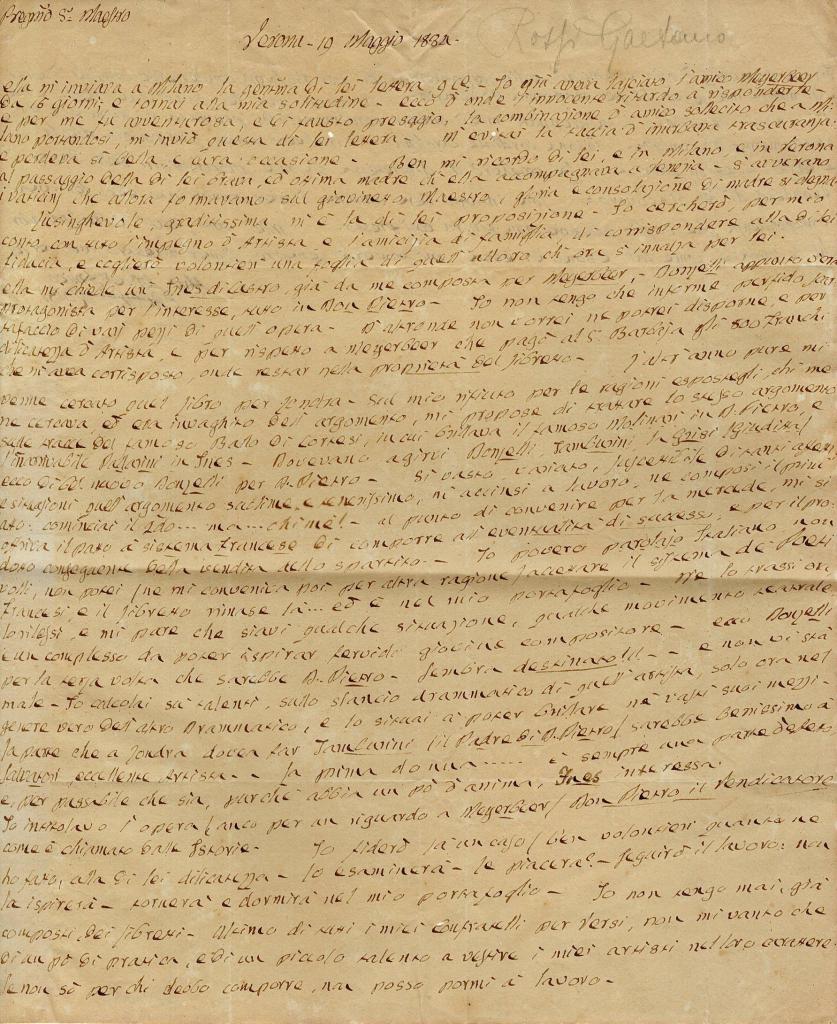 Pregmo Sr Maestro
Rossi Gaetano
Verona - 19 Maggio 1834 -
ella mi inviava a Milano la gentma di lei lettera 9 - Io già aveva lasciato l'amico Meyerbeer
da 16 giorni; e tornai alla mia solitudine - ecco d'onde l'innocente ritardo a risponderle -
e per me fu avventurosa, e di fausto presagio, la combinazione d'amico sollecito che a Mi
lano portandosi, mi inviò questa di lei lettera - m'evitai la taccia d'incivile trascuranza
e perdeva sì bella, e cara occasione - Ben mi ricordo di lei, e in Milano e in Verona
al passaggio della di lei brava, ed ottima madre ch'ella accompagnava a Venezia - s'avverano
i vaticinj che allora formavamo sul giovinetto Maestro, gloria e consolazione di madre sì degna
Lusinghevole, graditissima m'è la di lei proposizione - Io cercherò per mio
conto, con tutto l'impegno d'Artista, e l'amicizia di famiglia, di corrispondere alla di lei
fiducia, e coglierò volontieri una foglia di quell'alloro ch'ora s'innalza per lei.
ella mi chiede un' Ines di Castro, già da me composta per Meyerbeer, - Donzelli appunto n'era
Protagonista per l'interesse, tutto in Don Pietro - Io non tengo che informe perfido scar
tafaccio di varj pezzi di quell'opera - D'altronde non vorrei nè potrei disporne, e per
dilicatezza d'Artista, e per rispetto a Meyerbeer che pagò al Sr Barbaja gli 800 Franchi
che m'avea corrisposto, onde restar nella proprietà del libretto - L'altr'anno pure mi
venne cercato quel libro per Londra - Sul mio rifiuto per le ragioni espostegli, chi me
ne cercava, ed era invaghito dell'argomento, mi propose di trattare lo stesso argomento
sulle tracce del famoso Ballo di Cortesi, in cui brillava il famoso Molinari in D. Pietro, e
l'inarrivabile Pallerini in Ines - Dovevano agirvi Donzelli, Tamburini, la Grisi (Giuditta)
ecco di bel nuovo Donzelli per D. Pietro - Sì vasto, variato, suscettibile di tanti affetti,
e situazioni quell'argomento sublime, e tenerissimo, m'accinsi a lavoro, ne composi il primo
atto: cominciai il 2do... ma... ohimè! - al punto di convenire per la mercede, mi si
offriva il patto a sistema Francese di comporre all'eventualità di successo, e per il pro
dotto conseguente della vendita dello spartito - Io povero parolajo Italiano non
volli, non potei (nè mi conveniva poi per altra ragione) accettare il sistema de' Poeti
Francesi, e il libretto rimase là... ed è nel mio portafoglio - Ne lo trassi ora
lo rilessi, e mi pare che siavi qualche situazione, qualche movimento teatrale
e un complesso da poter ispirar fervido giovine compositore - ecco Donzelli
per la terza volta che sarebbe D. Pietro - Sembra destinato!!! - e non vi stà
male - Io calcolai su' talenti, sullo slancio drammatico di quell'artista, solo ora nel
genere vero dell'altro Drammatico, e lo situai a poter brillare ne' vasti suoi mezzi -
la parte che a Londra dovea far Tamburini (il Padre di D. Pietro) sarebbe benissimo a
Salvatori eccellente Artista - - la prima donna..... è sempre una parte d'effetto
e, per passabile che sia, purchè abbia un pò d'anima, Ines interessa.
Io intitolavo l'opera (anco per un riguardo a Meyerbeer) Don Pietro il Vendicatore
come è chiamato dalle Istorie - Io fiderò (a un caso) ben volontieri quanto ne
ho fatto, alla di lei dilicatezza - lo esaminerà - le piacerà? - Seguirò il lavoro: non
la ispirerà - tornerà e dormirà nel mio portafoglio - Io non tengo mai, già
composti, dei libretti - Ultimo di tutti i miei Confratelli per Versi, non mi vanto che
di un pò di pratica, e di un piccolo talento a vestire i miei artisti nel loro carattere.
Se non sò per chi debbo comporre, non posso pormi à lavoro -